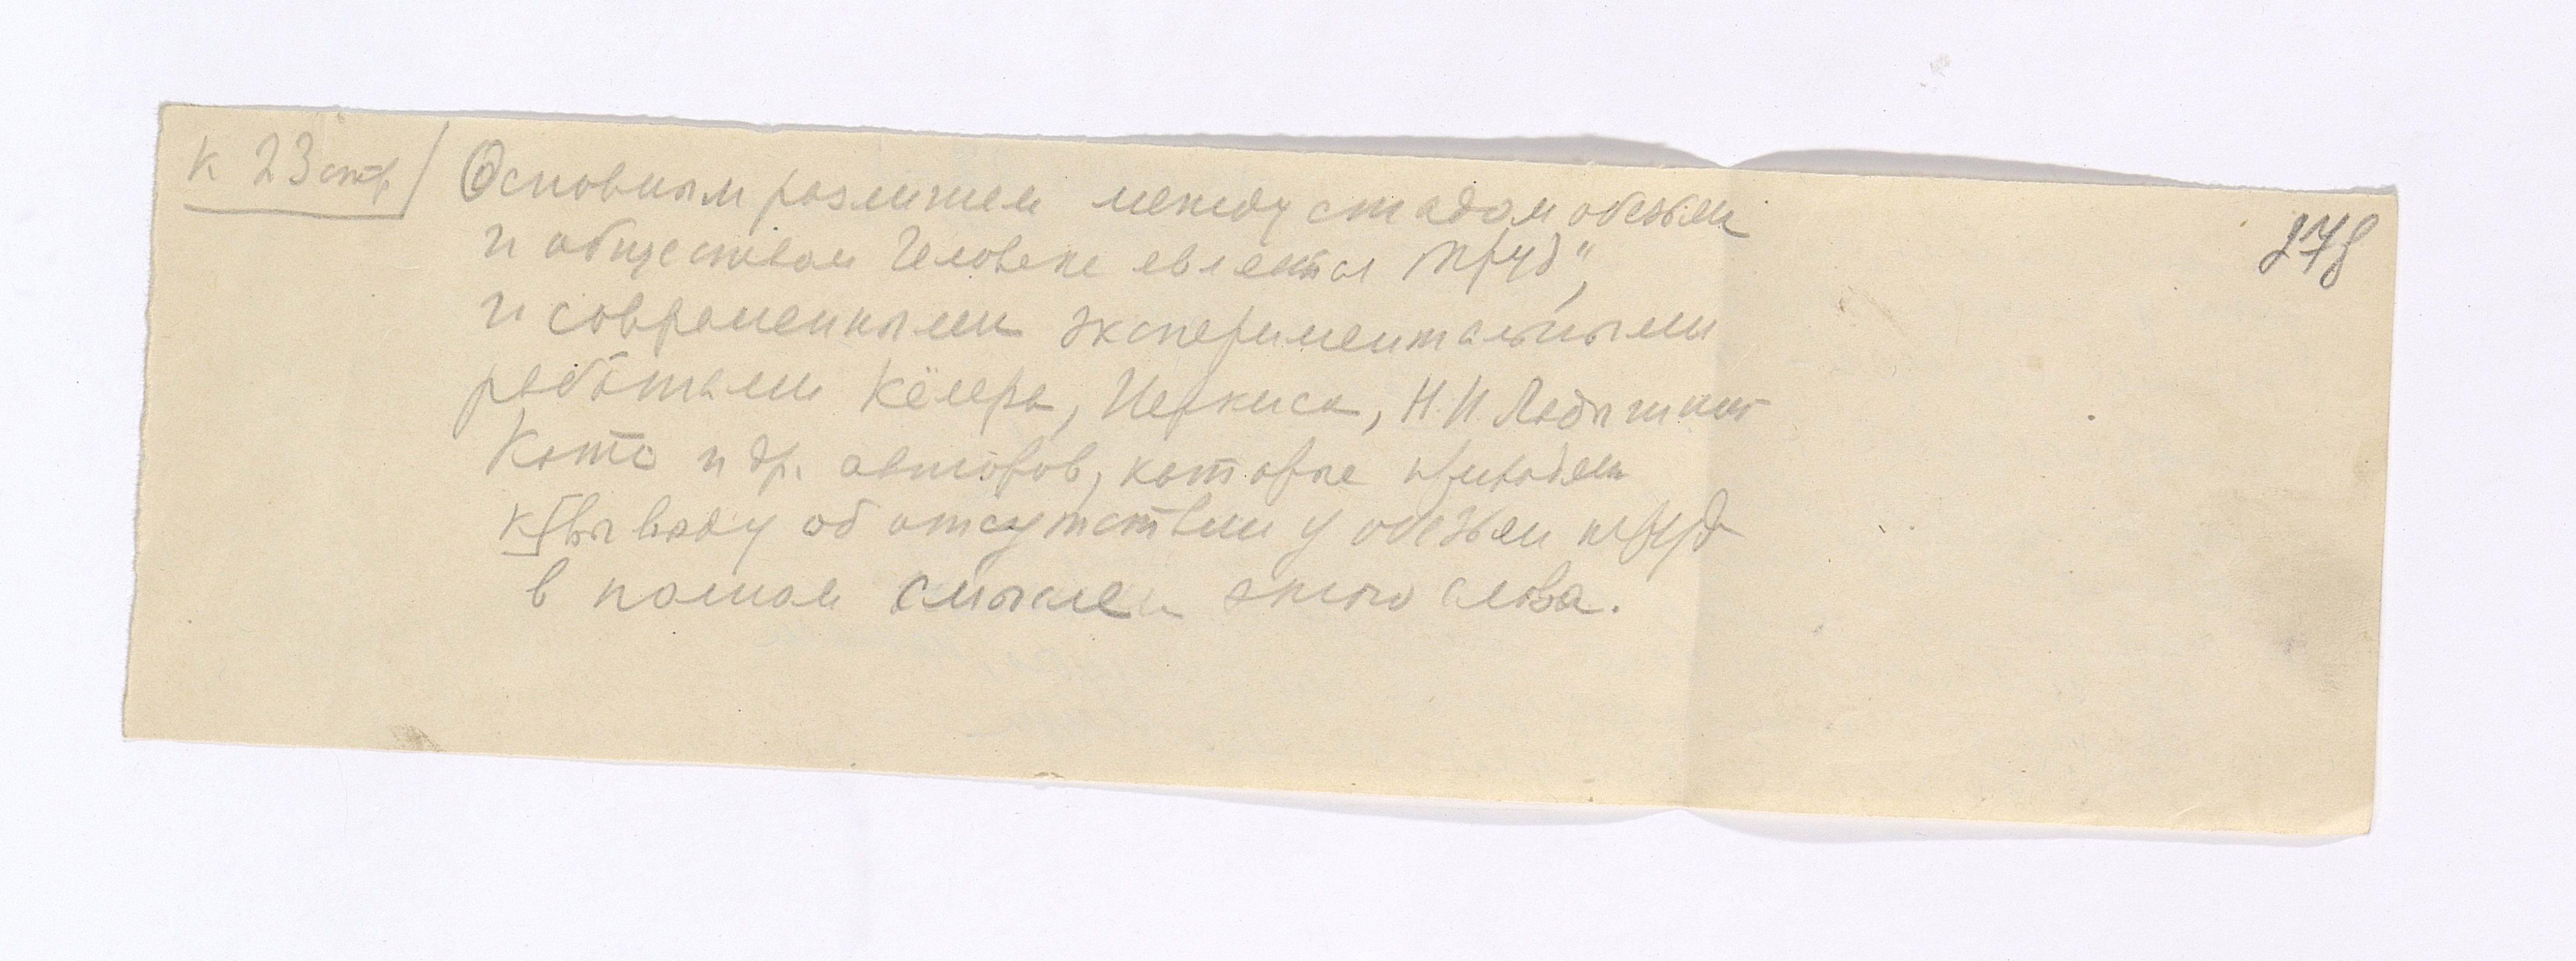 к 23 стр
Основным различием между стадом обезьян
и обществом человека является труд",
и современными экспериментальными
работами Кёлера, Иеркиса, Н.Н. Ладыгиной
Котс и др. авторов, которые приводят
к выводу об отсутствии у обезьян труда
в полном смысле этого слова.
278